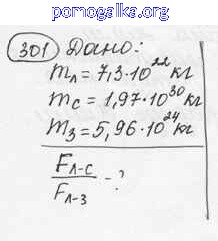 pomogalka.org
301 Дано:
mл = 7,3·10²² кг
mс = 1,97·10³⁰ кг
mз = 5,96·10²⁴ кг
Fл-с
Fл-з
-?